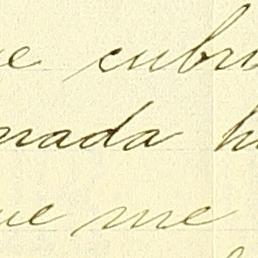 e cubri
nada h
ue me